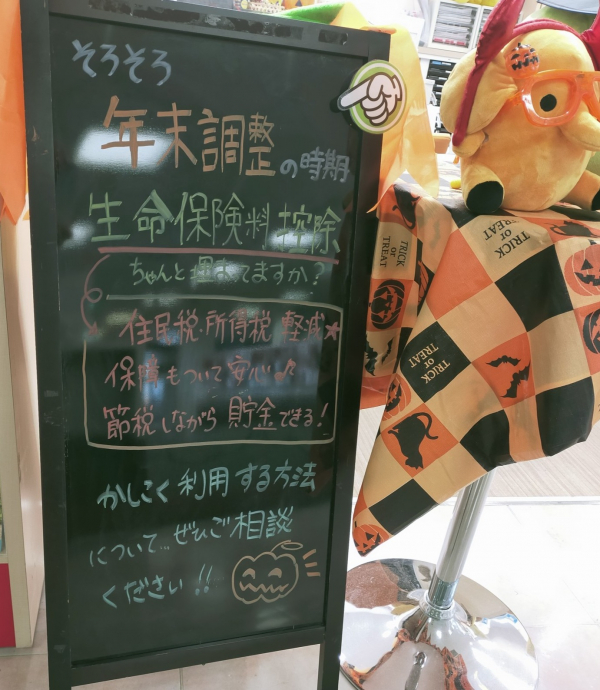 そろそろ
年末調整の時期
生命保険料控除
ちゃんと運本てますか?
住民税・所得税 軽減★
保障もついて安心♪
節税しながら貯金できる!
かしこく利用する方法
について…ぜひご相談
ください!!
TRICK
or
TREAT
TRICK
or
TREAT
TRICK
or
TREAT